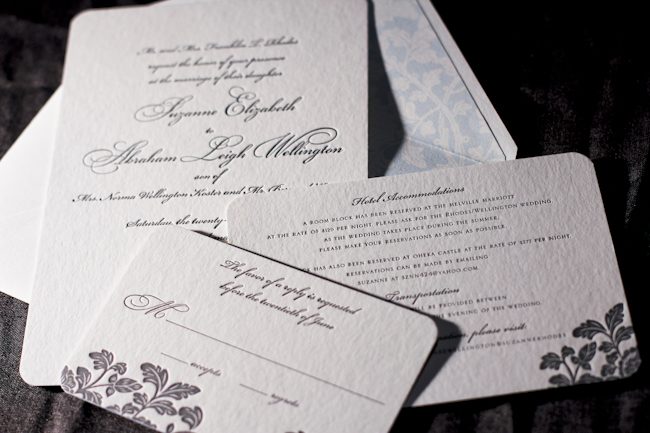 Mr. and Mrs. Franklin L. Rhodes
request the honor of your presence
at the marriage of their daughter
Suzanne Elizabeth
to
Abraham Leigh Wellington
son of
Mrs. Norma Wellington Koster and Mr.
Saturday, the twenty-
Hotel Accommodations
A ROOM BLOCK HAS BEEN RESERVED AT THE MELVILLE MARRIOTT
AT THE RATE OF $129 PER NIGHT. PLEASE ASK FOR THE RHODES/WELLINGTON WEDDING
AS THE WEDDING TAKES PLACE DURING THE SUMMER,
PLEASE MAKE YOUR RESERVATIONS AS SOON AS POSSIBLE.
HAS ALSO BEEN RESERVED AT OHEKA CASTLE AT THE RATE OF $377 PER NIGHT.
RESERVATIONS CAN BE MADE BY EMAILING
SUZANNE AT
Transportation
BE PROVIDED BETWEEN
EVENING OF THE WEDDING.
please visit:
The favor of a reply is requested
before the twentieth of June
M
accepts
regrets